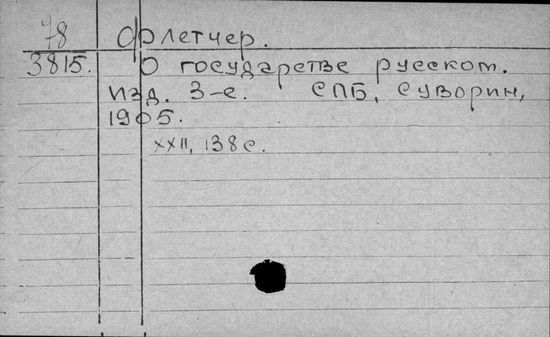 78 Флетчер.
3815. О государстве русском.
Изд. 3-е. СПБ, Суворин,
1905.
XXII, 138 с.